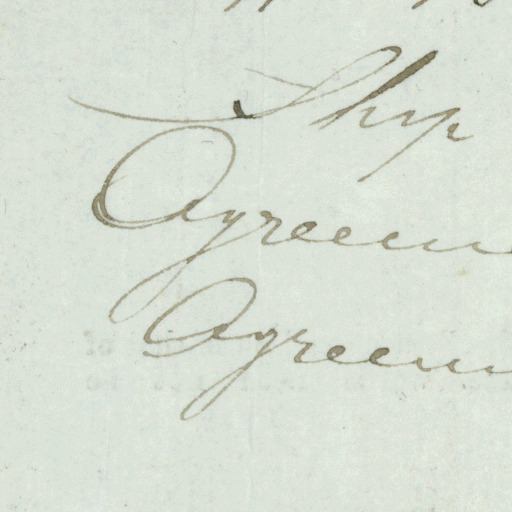 Ship
Agreem
Agreem